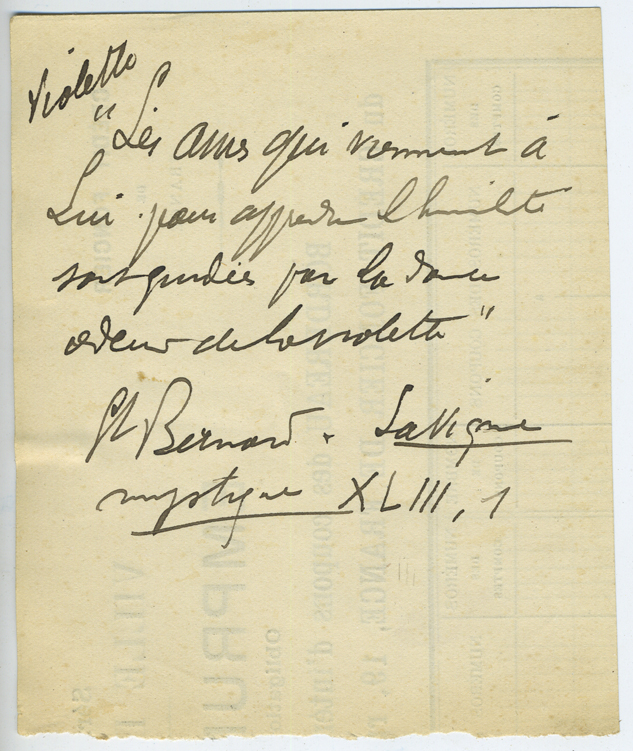 Violette
"Les âmes qui viennent à
Lui pour apprendre l'humilité
sont guidées par la douce
odeur de la violette"
St Bernard. La Vigne
mystique XLIII, 1